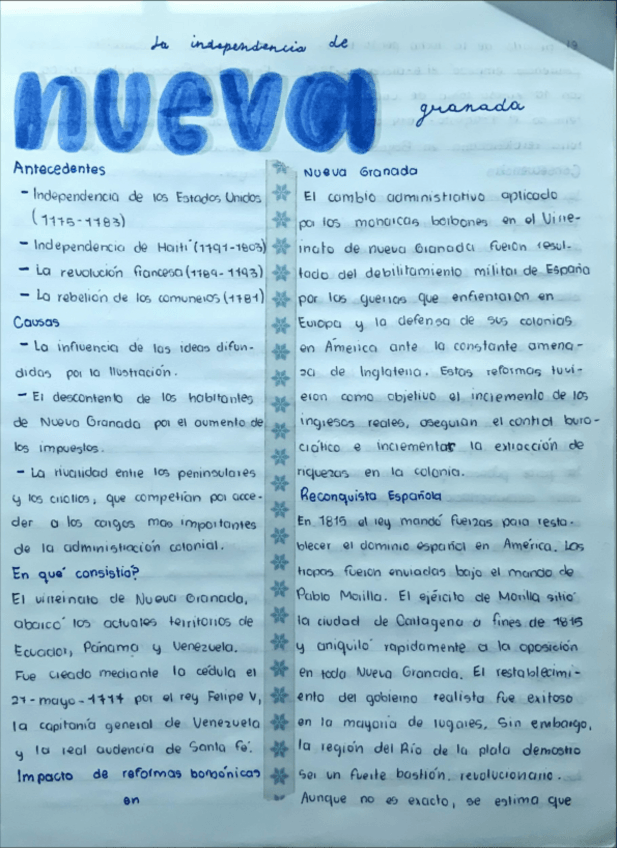 La independencia de
nueva
granada
Antecedentes
- Independencia de los Estados Unidos
(1775-1783)
- Independencia de Haití (1791-1803)
- La revolución francesa (1789-1793)
- La rebelión de los comuneros (1781)
Causas
- La influencia de las ideas difun-
didas por la Ilustración.
- El descontento de los habitantes
de Nueva Granada por el aumento de
los impuestos.
- La rivalidad entre los peninsulares
y los criollos, que competían por acce-
der a los cargos mas importantes
de la administración colonial.
En qué consistía?
El virreinato de Nueva Granada,
abarcó los actuales territorios de
Ecuador, Panama y Venezuela.
Fue creado mediante la cédula el
27-mayo-1717 por el rey Felipe V,
la capitanía general de Venezuela
y la real audencia de Santa Fé.
Impacto de reformas borbónicas
en
Nueva Granada
El cambio administrativo aplicado
por los monarcas borbones en el Virre-
inato de nueva Granada fueron resul-
tado del debilitamiento militar de España
por las guerras que enfrentaron en
Europa y la defensa de sus colonias
en América ante la constante amena-
za de Inglaterra. Estas reformas tuvi-
eron como objetivo el incremento de los
ingresos reales, asegurar el control buro-
crático e incrementar la extracción de
riquezas en la colonia.
Reconquista Española
En 1815 el rey mandó fuerzas para resta-
blecer el dominio español en América. Las
tropas fueron enviadas bajo el mando de
Pablo Morilla. El ejército de Morilla sitió
la ciudad de Cartagena a fines de 1815
y aniquiló rapidamente a la oposición
en toda Nueva Granada. El restablecimi-
ento del gobierno realista fue exitoso
en la mayoría de lugares. Sin embargo,
la región del Río de la plata demostro
ser un fuerte bastión revolucionario.
Aunque no es exacto, se estima que